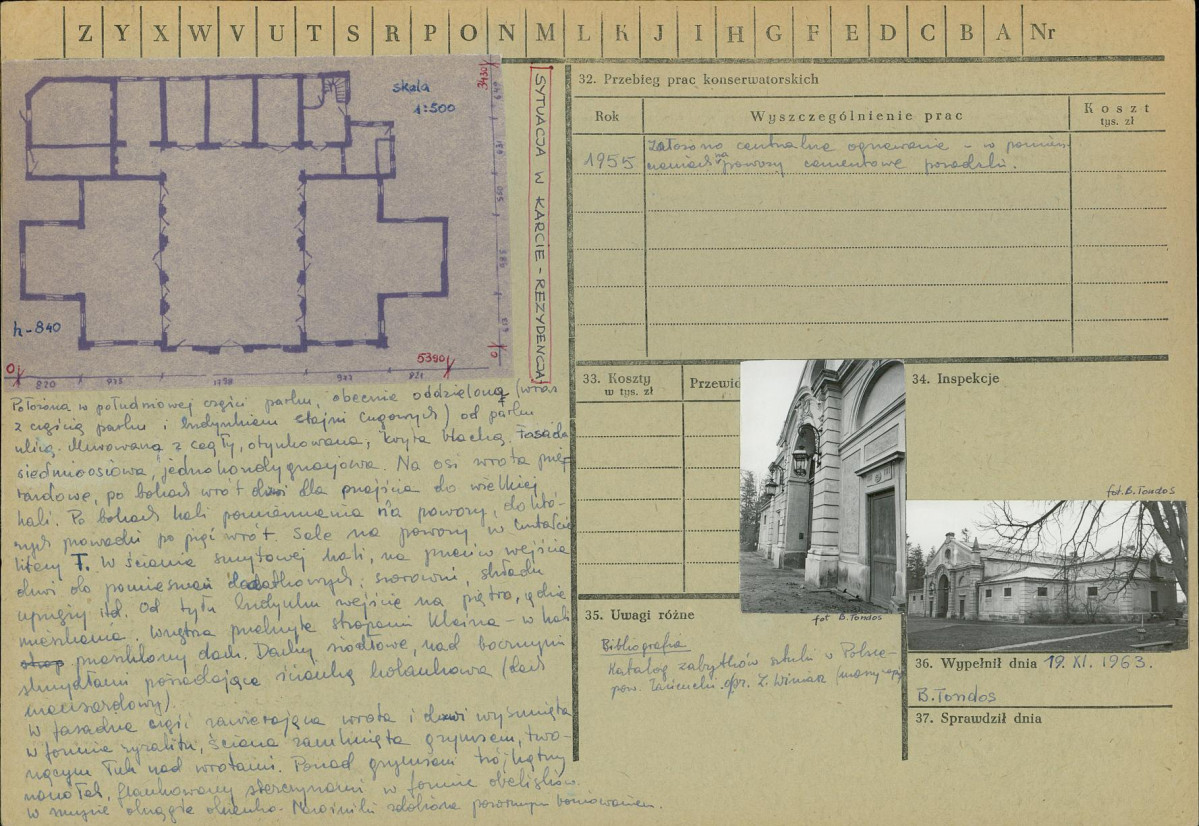 Z Y X W V U T S R P O N M L K J I H G F E D C B A Nr
skala
1:500
h-840
0
820
1798
821
5390
0
3430
SYTUACJA W KARCIE - REZYDENCJA
Położona w południowej części parku, obecnie oddzieloną (wraz
z częścią parku i budynkiem stajni cugowych) od parku
ulicą. Murowaną z cegły, otynkowana, kryta blachą. Fasada
siedmioosiowa, jednokondygnacjowa. Na osi wrota
po bokach wrót drzwi dla przejścia do wielkiej
hali. Po bokach hali pomieszczenia na powozy, do któ-
rych prowadzi po pięć wrót. Sale na powozy w kształcie
litery T. W ścianie szczytowej hali, na przeciw wejścia
drzwi do pomieszczeń dodatkowych; siorowni, składu
uprzęży itd. Od tyłu budynku wejście na piętro, gdzie
mieszkania. Wnętrza przekryte stropami Kleina - w hali
przeszklony dach. Dachy siodłowe, nad bocznymi
skrzydłami posiadające ściankę kolankową (dach
mansardowy).
W fasadzie część zawierająca wrota i drzwi wysunięta
w formie ryzalitu, ściana zamknięta gzymsem, two-
rzącym łuk nad wrotami. Ponad gzymsem trójkątny
naczółek, flankowany sterczynami w formie obelisków.
w szczycie okrągłe okienko. Narożniki zdobione pozornym boniowaniem.
32. Przebieg prac konserwatorskich
Rok
Wyszczególnienie prac
Koszt
tys. zł
1955
Założono centralne ogrzewanie - w pomiesz-
czeniach na powozy cementowe posadzki.
33. Koszty
w tys. zł
Przewid
34. Inspekcje
fot. B. Tondos
fot B. Tondos
35. Uwagi różne
Bibliografia
Katalog zabytków sztuki w Polsce -
pow. Łańcucki. opr.
36. Wypełnił dnia 19. XI. 1963.
B. Tondos
37. Sprawdził dnia